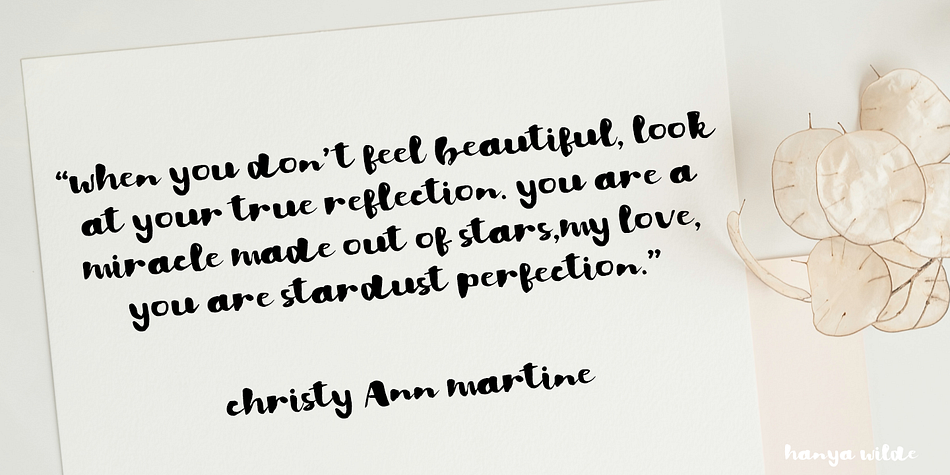 “when you don’t feel beautiful, look
at your true reflection. you are a
miracle made out of stars,my love,
you are stardust perfection.”
christy Ann martine
hanya wilde